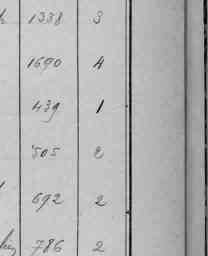 1338 3
1690 4
439 1
505 2
692 2
786 2